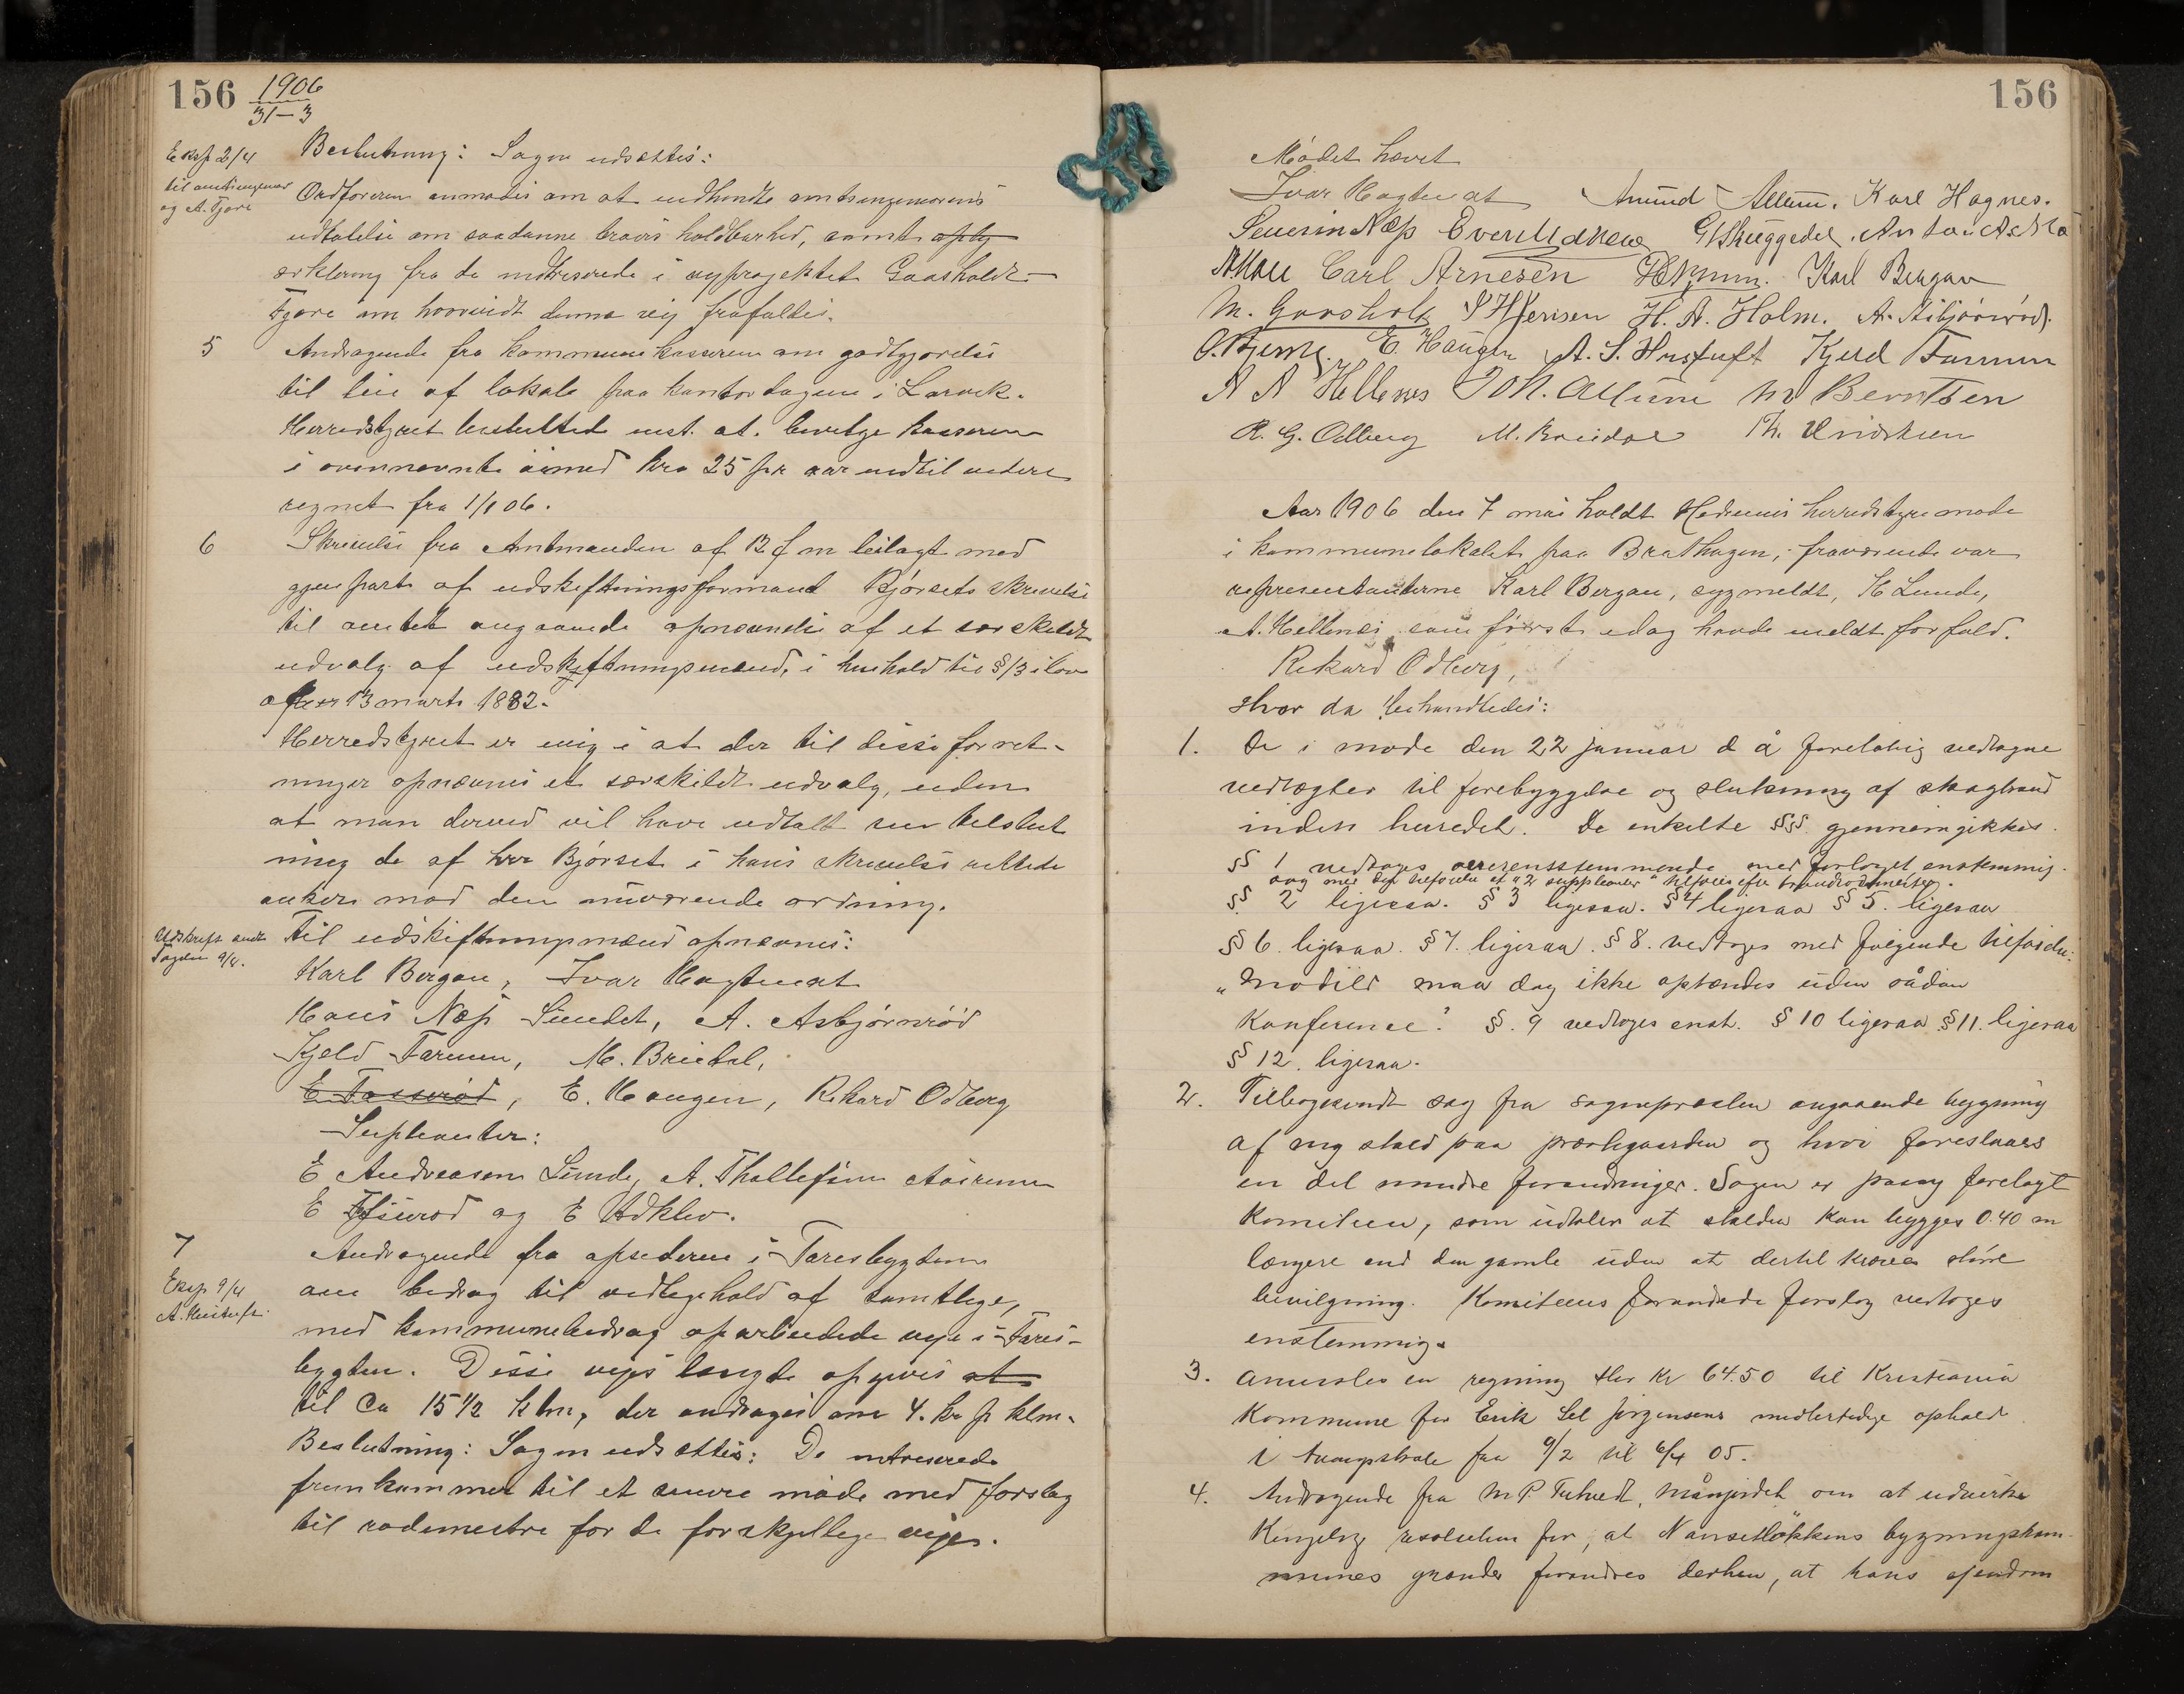 156 1906
31-3
Eksp 2/4
til amtsingeniør
og A. Fjære
Beslutning: Sagen udsættes:
Ordføreren anmodes om at indhente amtsingeniørens
udtalelse om saadanne broers holdbarhed, samt
erklæring fra de interesserede i veiprojektet Gaasholt-
Fjære om hvorvidt denne vei frafaldes.
5 Andragende fra kommunekassereren om godtgjørelse
til leie af lokale paa kontordagene i Larvik.
Herredstyret besluttet enst. at bevilge kassereren
i ovennævnte øimed kr 25 pr aar indtil videre
regnet fra 1/1 06.
6 Skrivelse fra Amtmanden af 12 f m bilagt med
gjenpart af udskiftningsformand Bjørsets skrivelse
til amtet angaaende opnævnelse af et særskildt
udvalg af udskiftningsmænd, i henhold til § 13 i lov
af 13 marts 1882.
Herredstyret er enig i at der til disse forret-
ninger opnævnes et særskildt udvalg, uden
at man derved vil have udtalt sin tilslut
ning de af herr Bjørset i hans skrivelse rettede
anker mod den nuværende ordning.
Udskrift sendt
Fogden 9/4.
Til udskiftningsmænd opnævnes:
Karl Bergan, Ivar Hagtvedt
Hans Næss Sundet, A. Asbjørnrød
Kjeld Farmen, M. Breidal,
E. Fosserød, E. Haugen, Rikard Odberg
Suplianter:
E Andreasen Lunde, A. Thollefsen
E og E Odklev.
7 Andragende fra opsederne i Faresbygden
Eksp 9/4
A. Hustuft.
om bidrag til vedligehold af samtlige,
med kommunebidrag oparbeidede veie i Fares-
bygden. Disse veies længde opgives at
til Ca 15 1/2 klm, der andrages om 4. kr pr klm.
Beslutning: Sagen udsættes: De intereserede
fremkommer til et senere møde med forslag
til rodemestre for de forskjellige veie.
156
Mødet hævet
Ivar Hagtvedt Amund Allum. Karl Hagnes.
Severin Næss Even Odklev G Skuggedal. Anton
Carl Arnesen Karl Bergan
M. Gaasholt S H Iversen H. A. Holm. A. Asbjørnrød.
O. Bjerke. E. Haugen A. S. Hustuft Kjeld Farmen
A A Hellenes Joh. Allum M Berntsen
R. G. Odberg M. Breidal Th.
Aar 1906 den 7 mai holdt Hedrums herredstyre møde
i kommunelokalet paa Brathagen, fraværende var
repræsentanterne Karl Bergan, sygmeldt, H Lunde,
A. Hellenes som først idag havde meldt forfald.
Rikard Odberg,
Hvor da behandledes:
1. De i møde den 22 januar d å foreløbig vedtagne
vedtægter til forebyggelse og slukning af skogbrand
inden herredet. De enkelte §§ gjennemgikkes.
§ 1 vedtoges overensstemmende med forslaget enstemmig.
dog med den tilføielse at "2 suppleanter" tilføies efter brandrodemester.
§ 2 ligesaa. § 3 ligesaa. § 4 ligesaa § 5. ligesaa
§ 6. ligesaa. § 7. ligesaa. § 8. vedtoges med følgende tilføielse:
"Modild maa dog ikke optændes uden sådan
konference". § 9 vedtoges enst. § 10 ligesaa. § 11. ligesaa
§ 12. ligesaa.
2. Tilbagesendt sag fra sognepresten angaaende bygning
af ny stald paa prestegaarden og hvor foreslaaes
en del mindre forandringer. Sagen er paany forelagt
Komiteen, som udtaler at stalden kan bygges 0.40 m
længere end den gamle uden at dertil kræves større
bevilgning. Komiteens forandrede forslag vedtoges
enstemmig.
3. Anvistes en regning stor kr 64.50 til Kristiania
Kommune for Erik Sel Jørgensens midlertidige ophold
i tvangsskole fra 9/2 til 6/4 05.
4. Andragende fra M P. Tutvedt, Månejordet om at udvirke
Kongelig resolution for, at Nansetløkkens bygningskom-
munes grænder forandres derhen, at hans eiendom